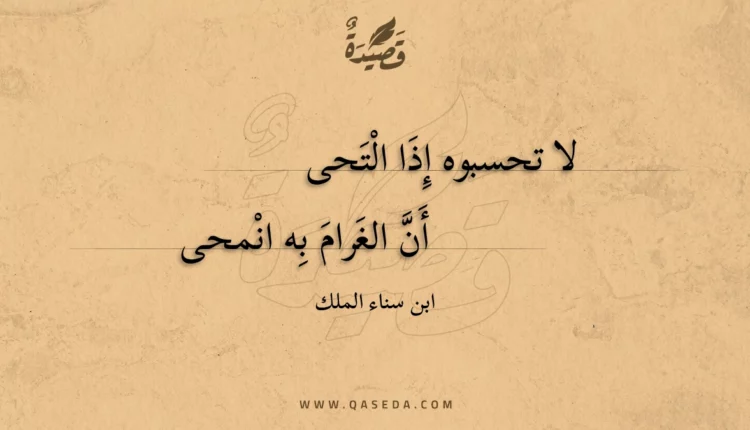 قَصِيْدَةٌ
لا تحسبوه إِذَا الْتَحى
أَنَّ الغَرامَ بِه انْمحى
ابن سناء الملك
WWW.QASEDA.COM